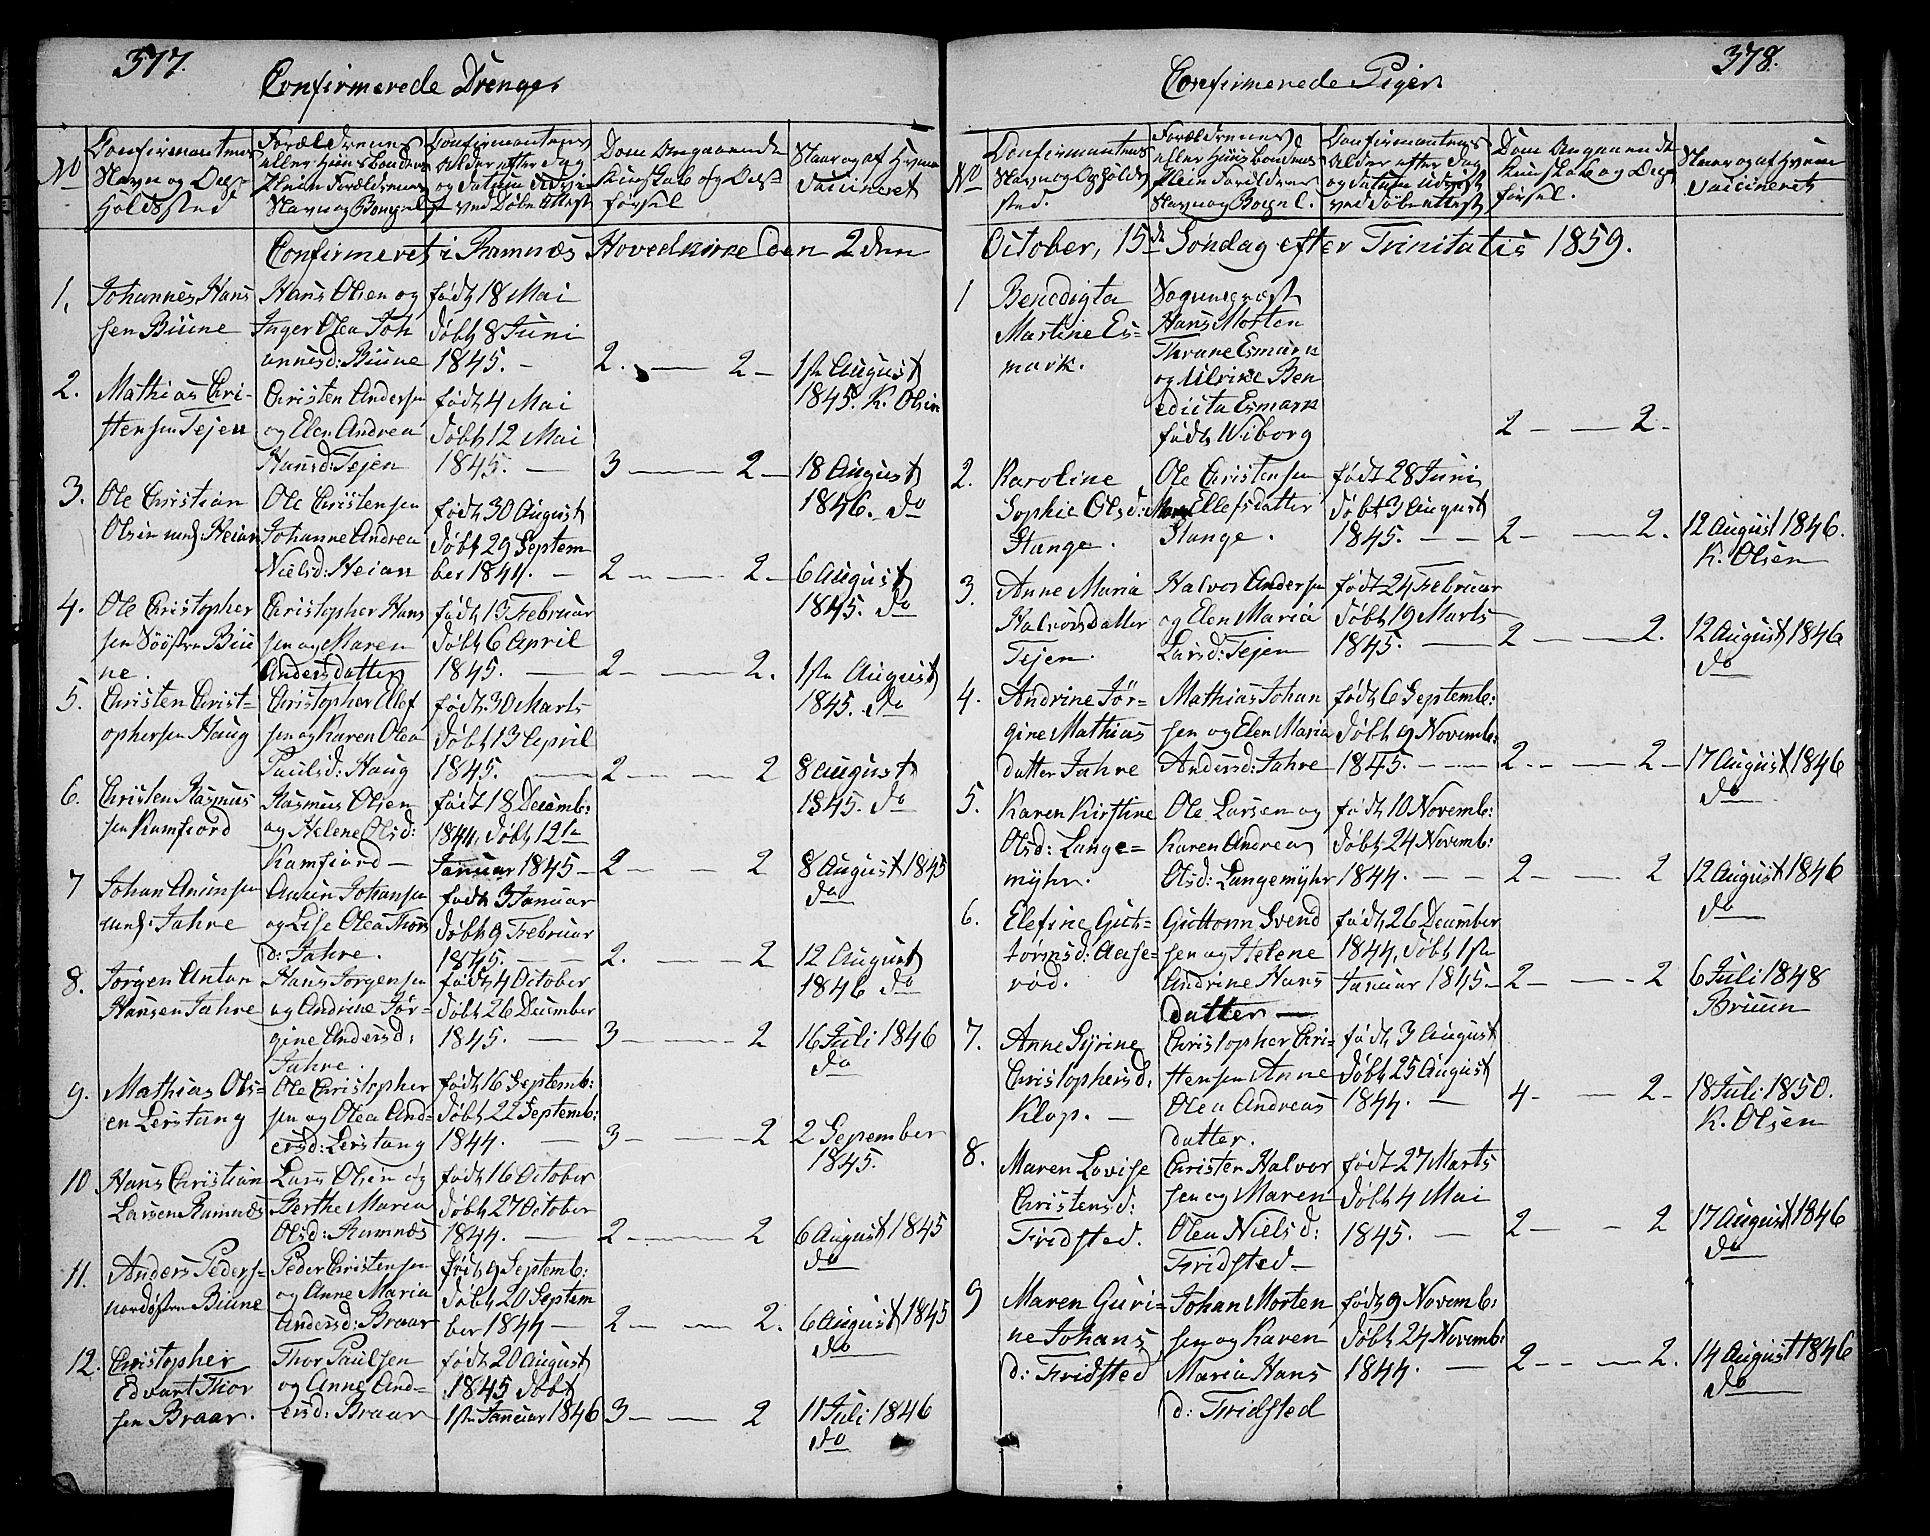 377.
Confirmerede Drenge.
No
Confirmantens
Navn og Op-
holdssted
Forældrenes
eller Huusbondens
Pleie Forældrenes
Navn og Boepæl
Confirmantens
Alder efter Dag
og Datum Udviist
ved Døbe Attest
Dom Angaaende
Kundskab og Op-
førsel
Naar og af Hvem
Vaccineret
Confirmeret i Ramnæs Hovedkirke den 2den
1.
Johannes Han
sen Biune
Hans Olsen og
Inger Olea Joh
annesd: Biune
født 18 Mai
døbt 8 Juni
1845. -
2. — 2 -
1ste August
1845. K. Olsen
2.
Mathias Chri-
stensen Tejen
Christen Andersen
og Elen Andrea
Hansd: Tejen
født 4 Mai
døbt 12 Mai
1845. —
3 — 2 -
18 August
1846. do
3.
Ole Christian
Olsen und: Heian
Ole Christensen
Johanne Andrea
Nielsd: Heian
født 30 August
døbt 29 Septem
ber 1844. -
2 - — 2 -
6 August
1845. do
4.
Ole Christopher
sen Biu
ne.
Christopher Hans
sen og Maren
Andersdatter
født 13 Februar
døbt 6 April
1845. —
2 - — 2.
1ste August
1845. do
5.
Christen Christ-
ophersen Haug
Christopher Olef
sen og Karen Olea
Paulsd: Haug
født 30 Marts
døbt 13 April
1845. —
2 — — 2
8 August
1845. do
6.
Christen Rasmus
sen Ramfiord
Rasmus Olsen
og Helene Olsd:
Ramfiord —
født 18 Decemb:
1844, døbt 12te
Januar 1845 -
2 — — 2
8 August 1845
do
7
Johan Anunsen
und: Jahre
Anun Johansen
og Lise Olea Thors
d: Jahre.
født 3 Januar
døbt 9 Februar
1845. — —
2. — — 2
12 August
1846 do
8.
Jørgen Anton
Hansen Jahre
Hans Jørgensen
og Andrine Jør-
gine Andersd:
Jahre.
født 4 October
døbt 26 December
1845. —
3 — — 2
16 Juli 1846
do
9.
Mathias Ols-
en Lerstang
Ole Christopher
sen og Olea And-
ersd: Lerstang
født 16 Septemb:
døbt 22 Septemb:
1844. —
3 - — 2
2 September
1845.
10
Hans Christian
Larsen Ramnæs
Lars Olsen og
Berthe Maria
Olsd: Ramnæs
født 16 October
døbt 27 October
1844. —
2 — 2
6 August 1845
do
11.
Anders Peders-
nordøstre Biune
Peder Christensen
og Anne Maria
Andersd: Braar
født 9 Septemb:
døbt 20 Septem
ber 1844 —
2 — — 2.
6 August 1845
do
12.
Christopher
Edvart Thor
sen Braar.
Thor Paulsen
og Anne And-
ersd: Braar
født 20 August
1845 døbt
1ste Januar 1846
3 — — 2
11 Juli 1846
do
378.
Confirmerede Piger
No
Confirmantens
Navn og Opholds
sted.
Forældrenes
eller Huusbondens
Pleie Forældrenes
Navn og Boepæl.
Confirmantens
Alder efter Dag
og Datum Udviist
ved Døbe attest
Dom Angaaende
Kundskab og Op-
førsel.
Naar og af Hvem
Vaccineret
October, 15de Søndag efter Trinitatis 1859.
1
Benedigta
Martine Es-
mark.
Sognepræst
Hans Morten
Thrane Esmark
og Ulrike Ben
edicta Esmark
født Wiborg
2 — — 2 -
2.
Karoline
Sophie Olsd:
Stange.
Ole Christensen
Ellefsdatter
Stange.
født 28 Juni
døbt 3 August
1845. — —
2 - — 2.
12 August 1846.
K. Olsen
3.
Anne Maria
Halvorsdatter
Tejen.
Halvor Andersen
og Elen Maria
Larsd: Tejen
født 24 Februar
døbt 19 Marts
1845. —
2 — — 2.
12 August 1846
do
4.
Andrine Jør-
gine Mathias
datter Jahre
Mathias Johan
sen og Elen Maria
Andersd: Jahre
født 6 Septemb:
døbt 9 Novemb:
1845. — —
2 - — 2 -
17 August 1846
do
5.
Karen Kirstine
Olsd: Lange=
myhr.
Ole Larsen og
Karen Andrea
Olsd: Langemyhr
født 10 Novemb:
døbt 24 Novemb:
1844. — —
2 — — 2
12 August 1846
do
6.
Elefine Gut-
tormsd: Aase-
rod.
Guttorm Svend
sen og Helene
Andrine Hans
datter —
født 26 December
1844, døbt 1ste
Januar 1845 -
2 — — 2
6 Juli 1848
Bruun
7.
Anne Syrine
Christophersd:
Klop. —
Christopher Chri-
stensen Anne
Olea Andreas
datter.
født 3 August
døbt 25 August
1844. —
4 - — 2 -
18 Juli 1850.
K. Olsen
8.
Maren Lovise
Christensd:
Fridsted.
Christen Halvor
sen og Maren
Olea Nielsd:
Fridsted —
født 27 Marts
døbt 4 Mai
1845. —
2 — - 2
17 August 1846
do
9
Maren Guri-
ne Johans
d: Fridsted
Johan Morten
sen og Karen
Maria Hans
d: Fridsted
født 9 Novemb:
døbt 24 Novemb:
1844. —
2 — — 2.
14 August 1846
do